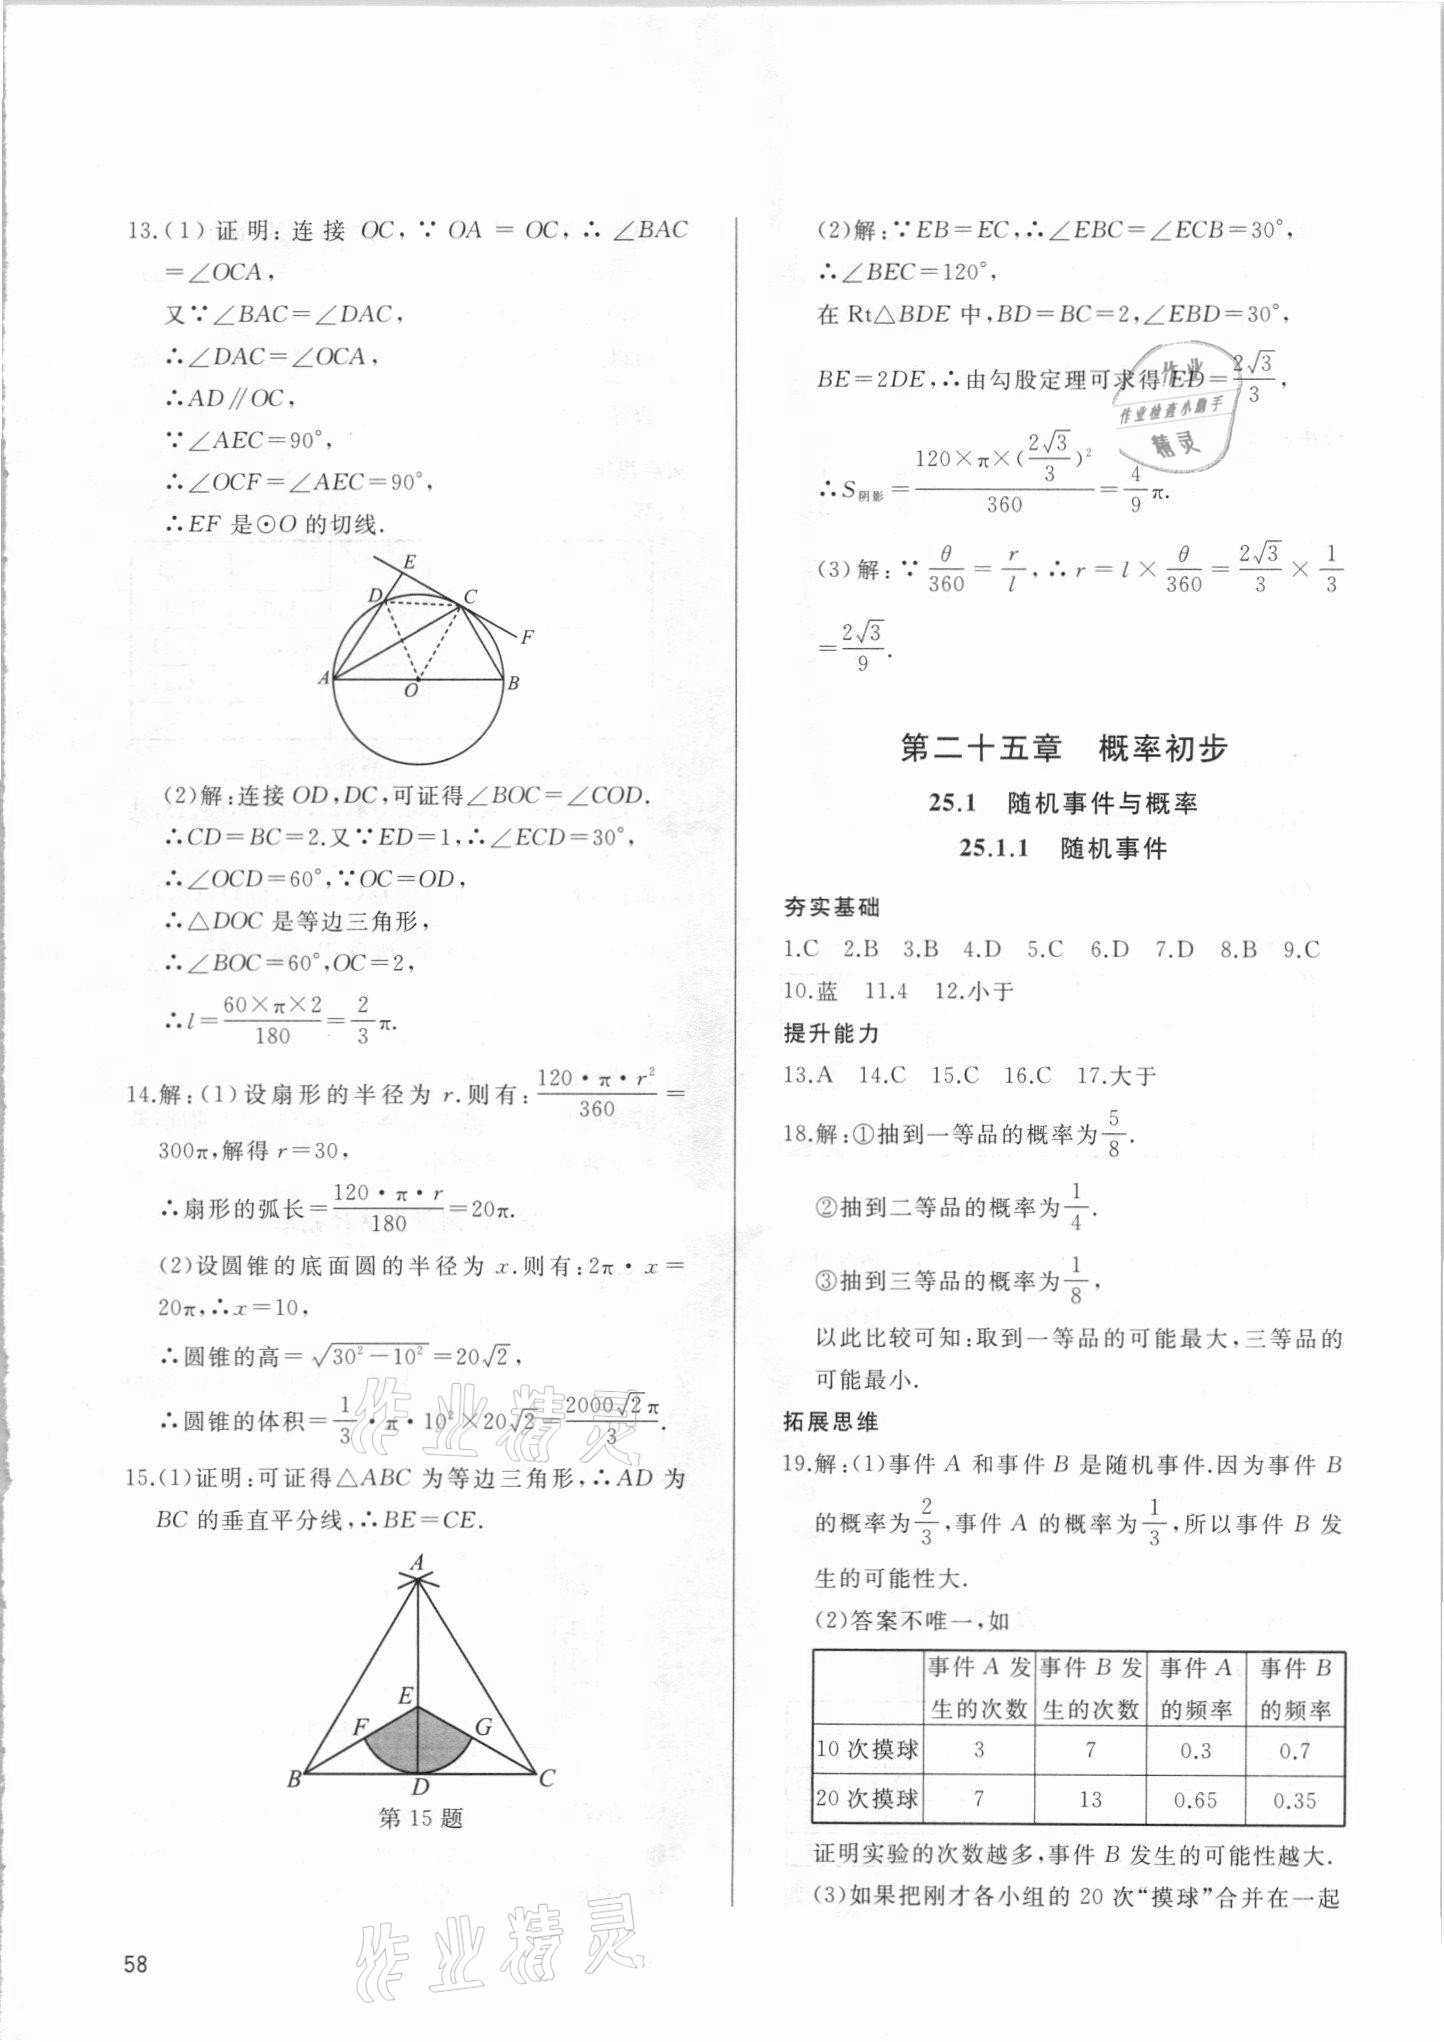 13.(1)证明:连接 OC,∵ OA = OC,∴ ∠BAC
=∠OCA,
又∵∠BAC=∠DAC,
∴∠DAC=∠OCA,
∴AD∥OC,
∵∠AEC=90°,
∴∠OCF=∠AEC=90°,
∴EF 是⊙O 的切线.
E
D
C
F
A
O
B
(2)解:连接 OD,DC,可证得∠BOC=∠COD.
∴CD=BC=2.又∵ED=1,∴∠ECD=30°,
∴∠OCD=60°,∵OC=OD,
∴△DOC 是等边三角形,
∴∠BOC=60°,OC=2,
∴l=60×π×2/180=2/3π.
14.解:(1)设扇形的半径为 r.则有:120·π·r²/360=
300π,解得 r=30,
∴扇形的弧长=120·π·r/180=20π.
(2)设圆锥的底面圆的半径为 x.则有:2π·x=
20π,∴x=10,
∴圆锥的高=√(30²-10²)=20√2,
∴圆锥的体积=1/3·π·10²×20√2=2000√2π/3.
15.(1)证明:可证得△ABC 为等边三角形,∴AD 为
BC 的垂直平分线,∴BE=CE.
A
E
F
G
B
D
C
第 15 题
58
(2)解:∵EB=EC,∴∠EBC=∠ECB=30°,
∴∠BEC=120°,
在 Rt△BDE 中,BD=BC=2,∠EBD=30°,
BE=2DE,∴由勾股定理可求得 ED=2√3/3,
∴S阴影=120×π×(2√3/3)²/360=4/9π.
(3)解:∵θ/360=r/l,∴r=l×θ/360=2√3/3×1/3
=2√3/9.
第二十五章 概率初步
25.1 随机事件与概率
25.1.1 随机事件
夯实基础
1.C 2.B 3.B 4.D 5.C 6.D 7.D 8.B 9.C
10.蓝 11.4 12.小于
提升能力
13.A 14.C 15.C 16.C 17.大于
18.解:①抽到一等品的概率为5/8.
②抽到二等品的概率为1/4.
③抽到三等品的概率为1/8,
以此比较可知:取到一等品的可能最大,三等品的
可能最小.
拓展思维
19.解:(1)事件 A 和事件 B 是随机事件.因为事件 B
的概率为2/3,事件 A 的概率为1/3,所以事件 B 发
生的可能性大.
(2)答案不唯一,如
事件 A 发生的次数 事件 B 发生的次数 事件 A 的频率 事件 B 的频率
10 次摸球 3 7 0.3 0.7
20 次摸球 7 13 0.65 0.35
证明实验的次数越多,事件 B 发生的可能性越大.
(3)如果把刚才各小组的 20 次“摸球”合并在一起
作业
作业检查小助手
精灵
作业精灵
作业精灵